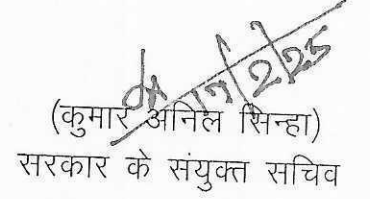 17/2/25
(कुमार अनिल सिन्हा)
सरकार के संयुक्त सचिव